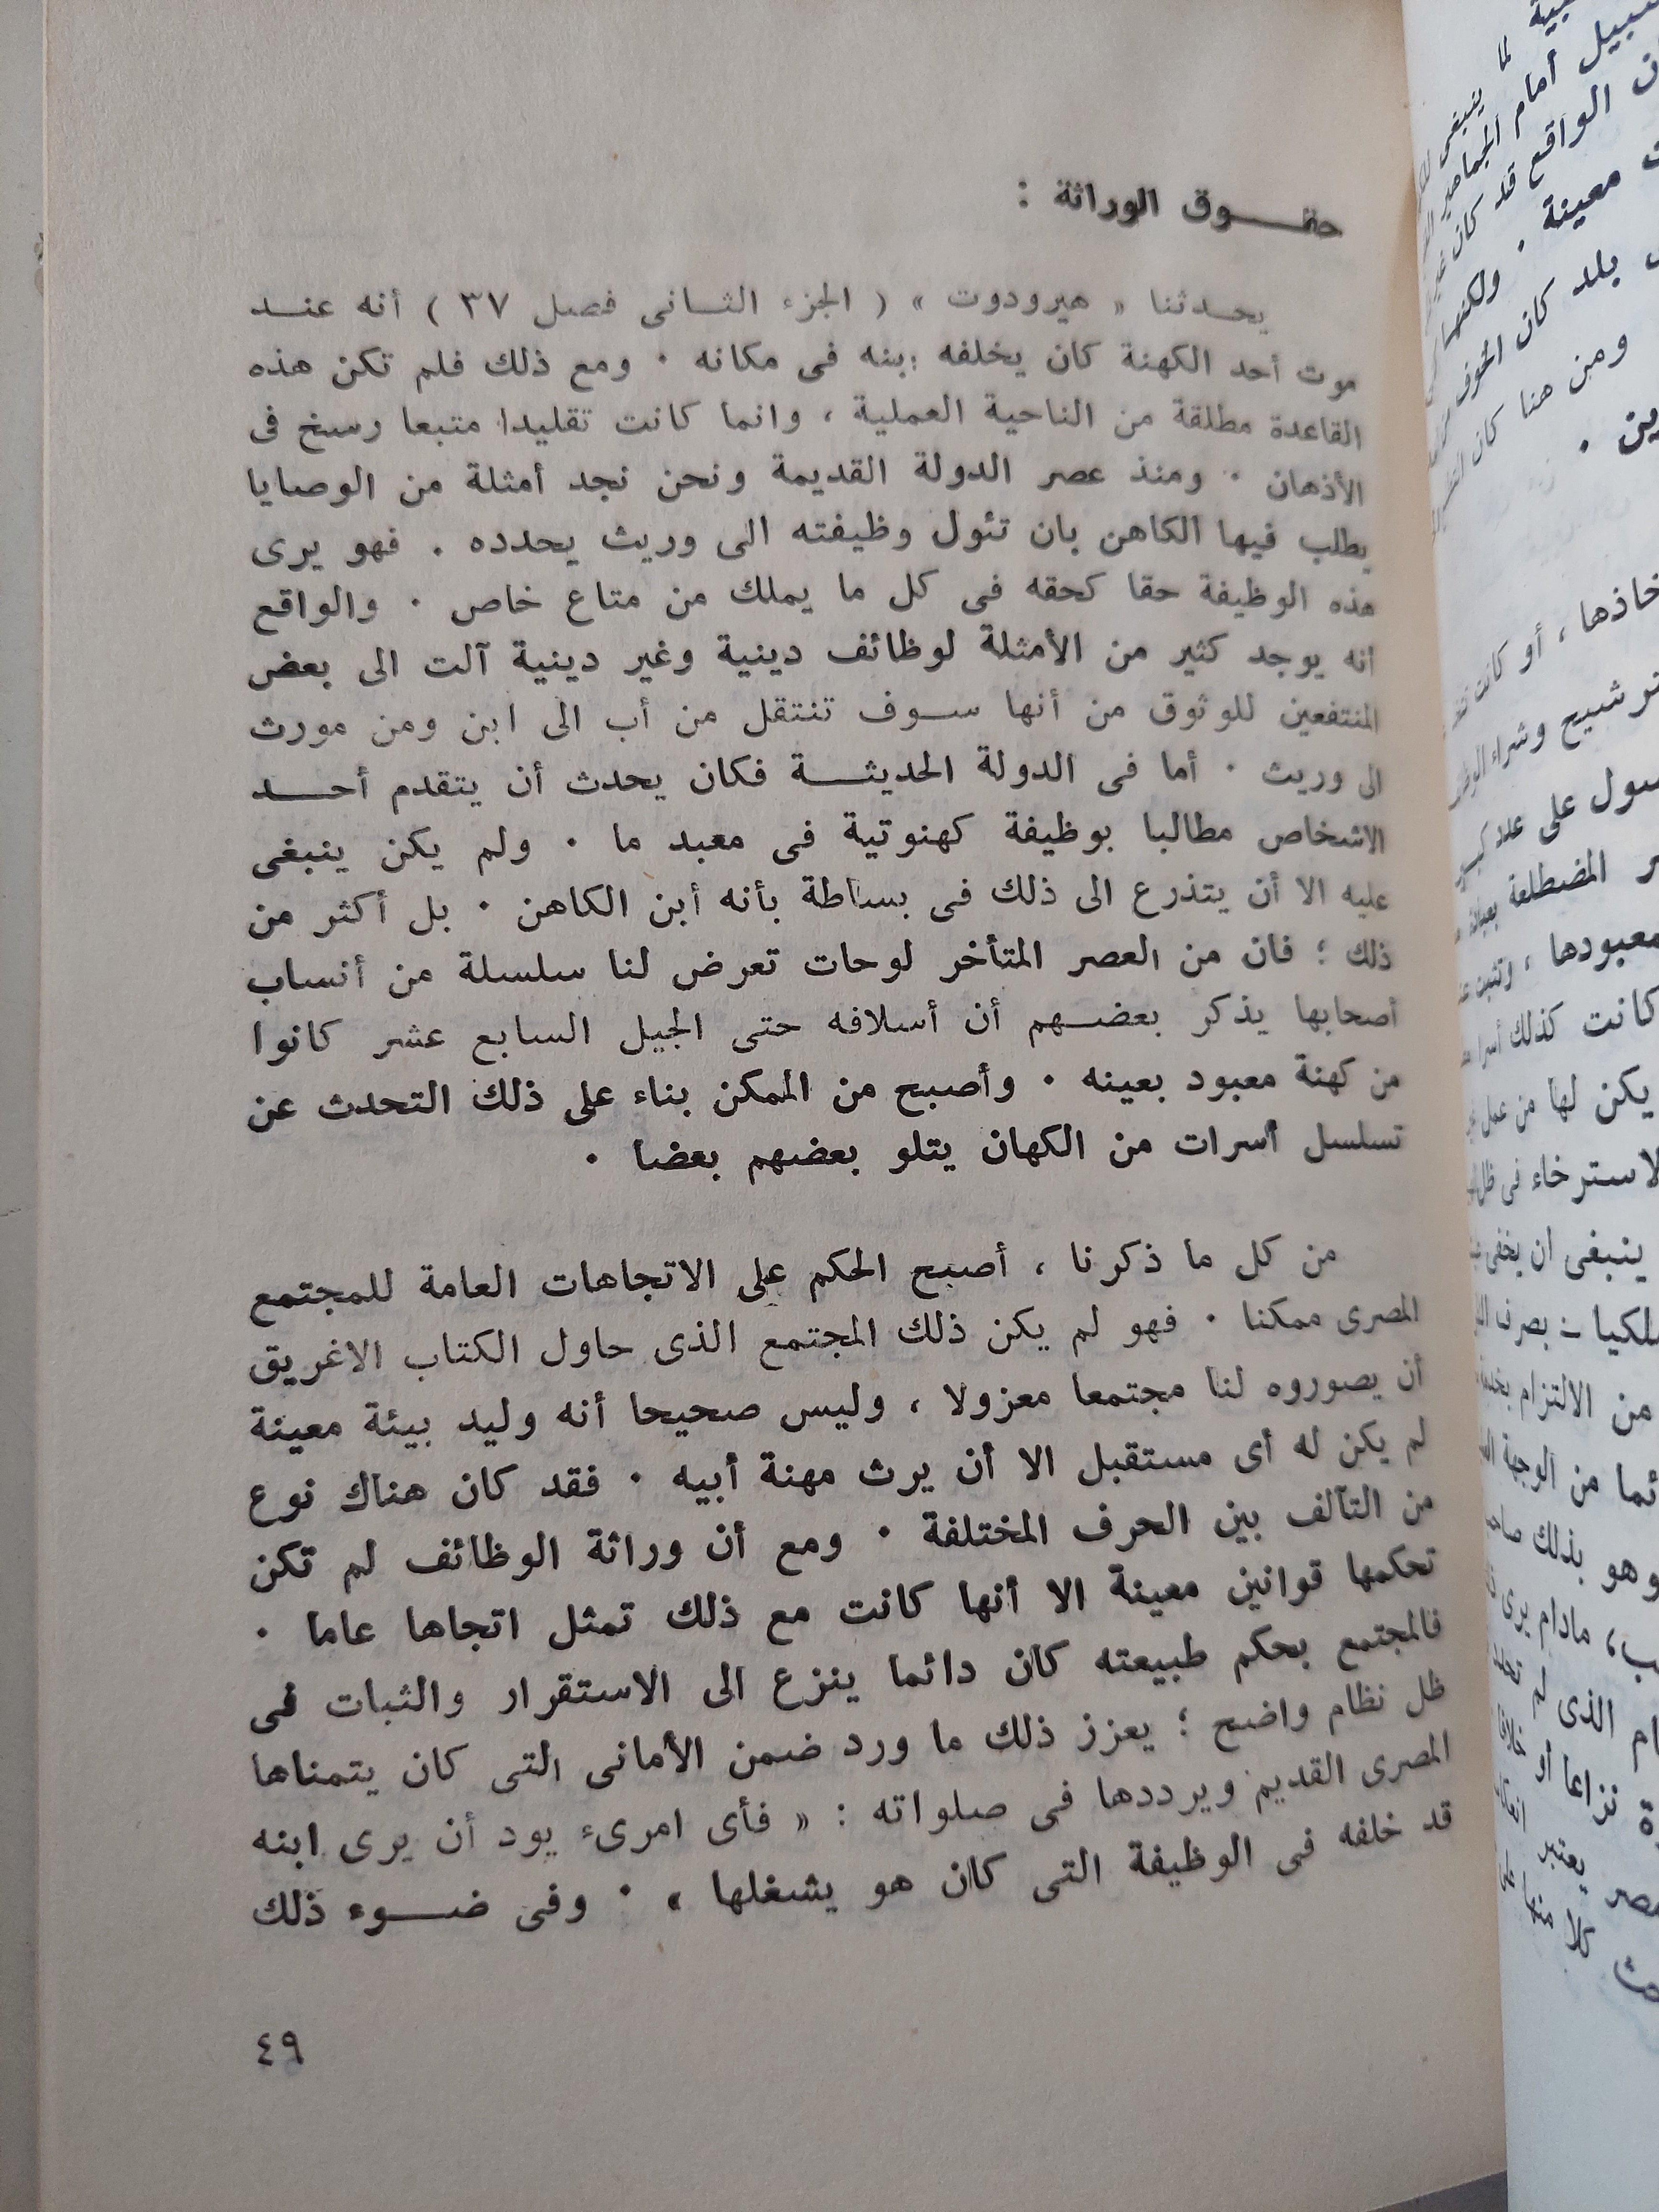 حقــــوق الوراثة :
يحــدثنا « هيرودوت » ( الجزء الثــانى فصل ٣٧ ) أنه عنــد
موت أحد الكهنة كان يخلفه ابنه فى مكانه . ومع ذلك فلم تكن هذه
القاعدة مطلقة من الناحية العملية ، وانما كانت تقليدا متبعا رسخ فى
الأذهان . ومنذ عصر الدولة القديمة ونحن نجد أمثلة من الوصايا
يطلب فيها الكاهن بان تئول وظيفته الى وريث يحدده . فهو يرى
هذه الوظيفة حقا كحقه فى كل ما يملك من متاع خاص . والواقع
أنه يوجد كثير من الأمثلة لوظائف دينية وغير دينية آلت الى بعض
المنتفعين للوثوق من أنها ســوف تنتقل من أب الى ابن ومن مورث
الى وريث . أما فى الدولة الحديثــــة فكان يحدث أن يتقدم أحــد
الاشخاص مطالبا بوظيفة كهنوتية فى معبد ما . ولم يكن ينبغى
عليه الا أن يتذرع الى ذلك فى بساطة بأنه أبن الكاهن . بل أكثر من
ذلك ؛ فان من العصر المتأخر لوحات تعرض لنا سلسلة من أنساب
أصحابها يذكر بعضــهم أن أسلافه حتى الجيل السابع عشر كانوا
من كهنة معبود بعينه . وأصبح من الممكن بناء على ذلك التحدث عن
تسلسل أسرات من الكهان يتلو بعضهم بعضا .
من كل ما ذكرنا ، أصبح الحكم على الاتجاهات العامة للمجتمع
المصرى ممكنا . فهو لم يكن ذلك المجتمع الذى حاول الكتاب الاغريق
أن يصوروه لنا مجتمعا معزولا ، وليس صحيحا أنه وليد بيئة معينة
لم يكن له أى مستقبل الا أن يرث مهنة أبيه . فقد كان هناك نوع
من التآلف بين الحرف المختلفة . ومع أن وراثة الوظائف لم تكن
تحكمها قوانين معينة الا أنها كانت مع ذلك تمثل اتجاها عاما .
فالمجتمع بحكم طبيعته كان دائما ينزع الى الاستقرار والثبات فى
ظل نظام واضح ؛ يعزز ذلك ما ورد ضمن الأمانى التى كان يتمناها
المصرى القديم ويرددها فى صلواته : « فأى امرىء يود أن يرى ابنه
قد خلفه فى الوظيفة التى كان هو يشغلها » . وفى ضــوء ذلك
٤٩